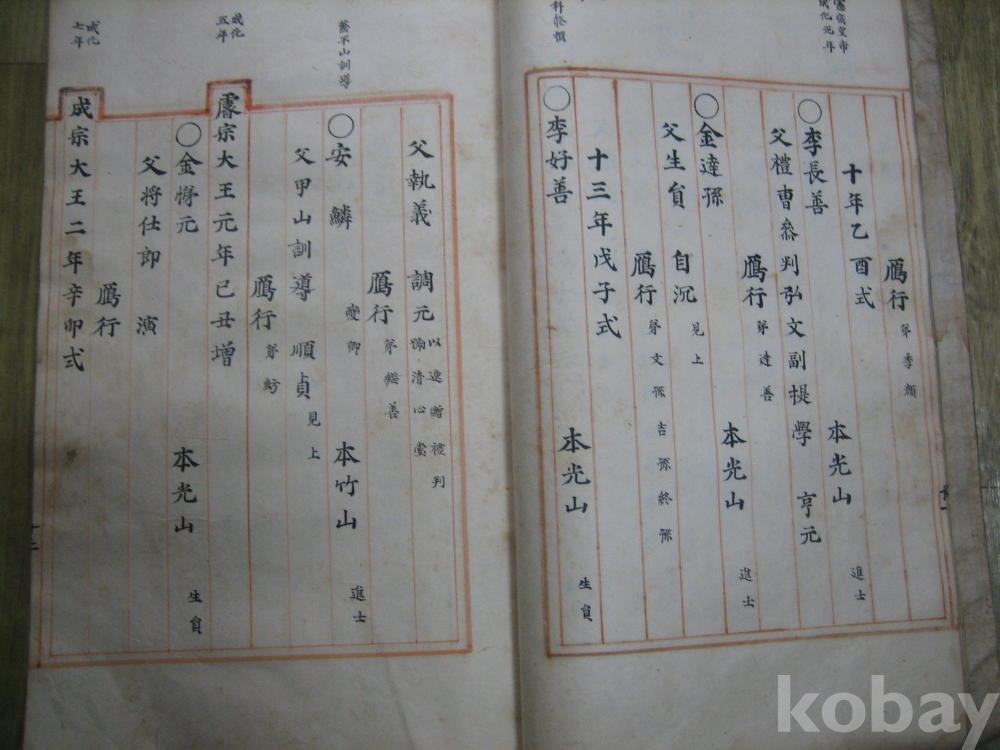 憲宗皇帝
成化元年
鴈行 弟 孝顔
十年乙酉式
○李長善 本光山 進士
父禮曹叅判弘文副提學 亨元
鴈行 弟 達善
○金達孫 本光山 進士
父生負 自沉 見上
鴈行 弟 文孫 吉孫 終孫
十三年戊子式
○李好善 本光山 生負
父執義 調元 以逵贈叅判 清心堂
鴈行 弟 繼善
蔡不山訓導
○安鱗 本竹山 進士
父甲山訓導 順貞 見上
鴈行 弟 魴
成化
五年
睿宗大王元年己丑增
○金得元 本光山 生負
父將仕郎 演
鴈行
成化
七年
成宗大王二年辛卯式
kobay